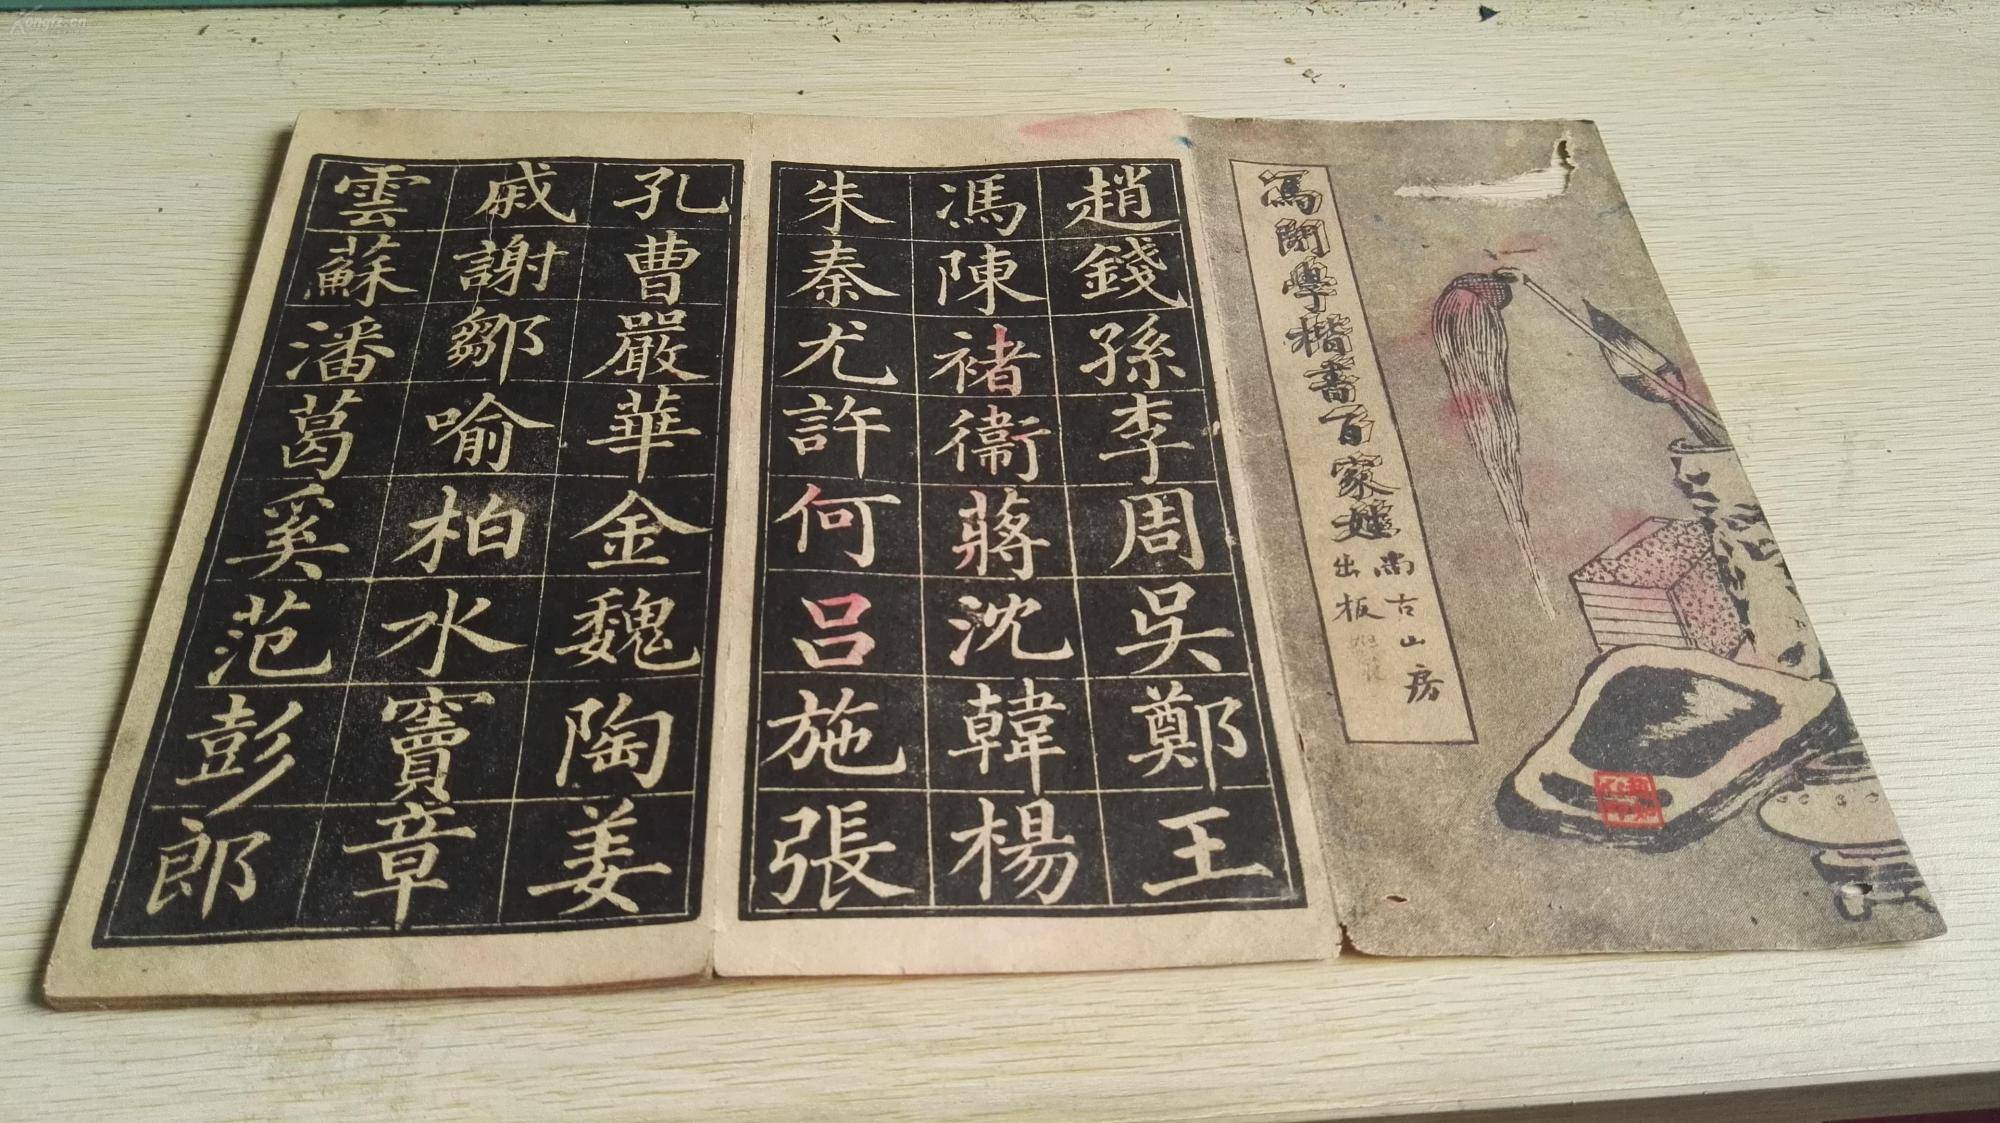 馮開學楷書百家姓
尚古山房
出板
趙錢孫李周吳鄭王
馮陳褚衞蔣沈韓楊
朱秦尤許何呂施張
孔曹嚴華金魏陶姜
戚謝鄒喻柏水竇章
雲蘇潘葛奚范彭郎